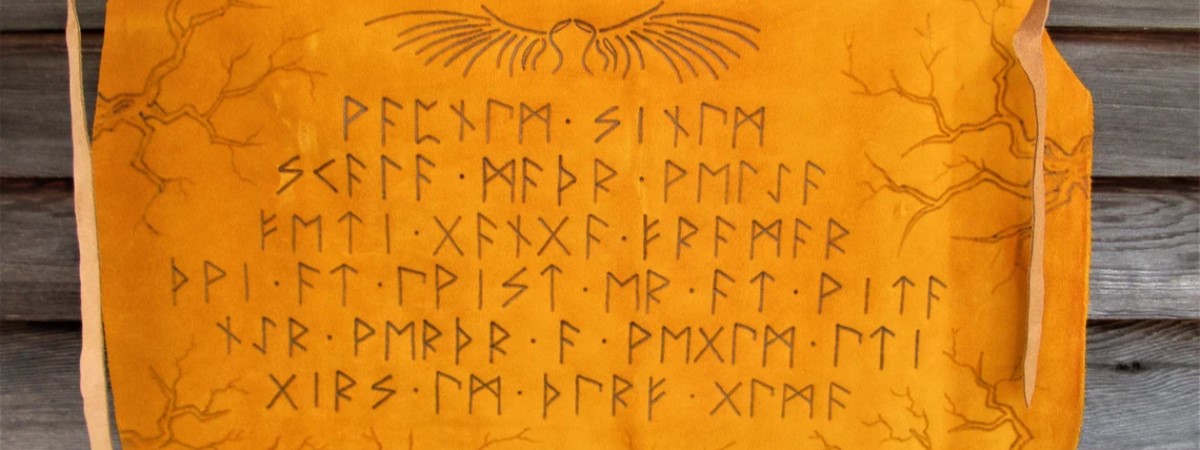 ᚹᚨᛈᚾᚢᛗ · ᛊᛁᚾᚢᛗ
ᛊᚲᚨᛚᚨ · ᛗᚨᚦᚱ · ᚹᛖᛚᛇᚨ
ᚠᛖᛏᛁ · ᚷᚨᚾᚷᚨ · ᚠᚱᚨᛗᚨᚱ
ᚦᚹᛁ · ᚨᛏ · ᚢᚹᛁᛊᛏ · ᛖᚱ · ᚨᛏ · ᚹᛁᛏᚨ
ᚾᛇᚱ · ᚹᛖᚱᚦᚱ · ᚨ · ᚹᛖᚷᚢᛗ · ᚢᛏᛁ
ᚷᛁᚱᛊ · ᚢᛗ · ᚦᚢᚱᚠ · ᚷᚢᛗᚨ